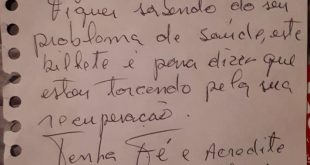 Fiquei sabendo do seu
probloma de saúde, este
bilhete é para dizer que
estou torcendo pela sua
recuperação.
Tenha Fé e Acredite